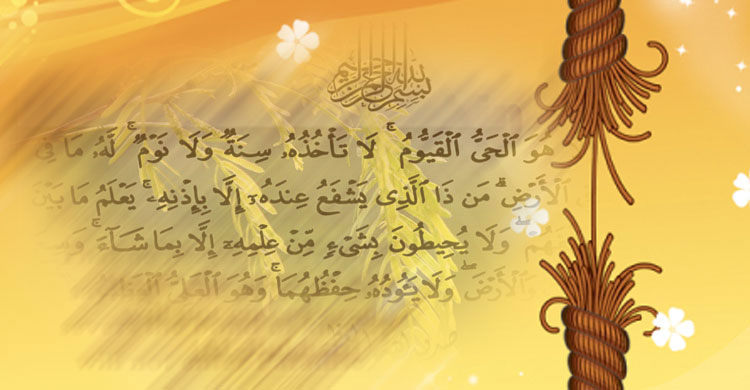 بسم الله الرحمن الرحيم
هُوَ ٱلْحَىُّ ٱلْقَيُّومُ ۚ لَا تَأْخُذُهُۥ سِنَةٌۭ وَلَا نَوْمٌۭ ۚ لَّهُۥ مَا فِى
ٱلْأَرْضِ ۗ مَن ذَا ٱلَّذِى يَشْفَعُ عِندَهُۥٓ إِلَّا بِإِذْنِهِۦ ۚ يَعْلَمُ مَا بَيْنَ
وَلَا يُحِيطُونَ بِشَىْءٍۢ مِّنْ عِلْمِهِۦٓ إِلَّا بِمَا شَآءَ ۚ
وَٱلْأَرْضَ ۖ وَلَا يَـُٔودُهُۥ حِفْظُهُمَا ۚ وَهُوَ ٱلْعَلِىُّ